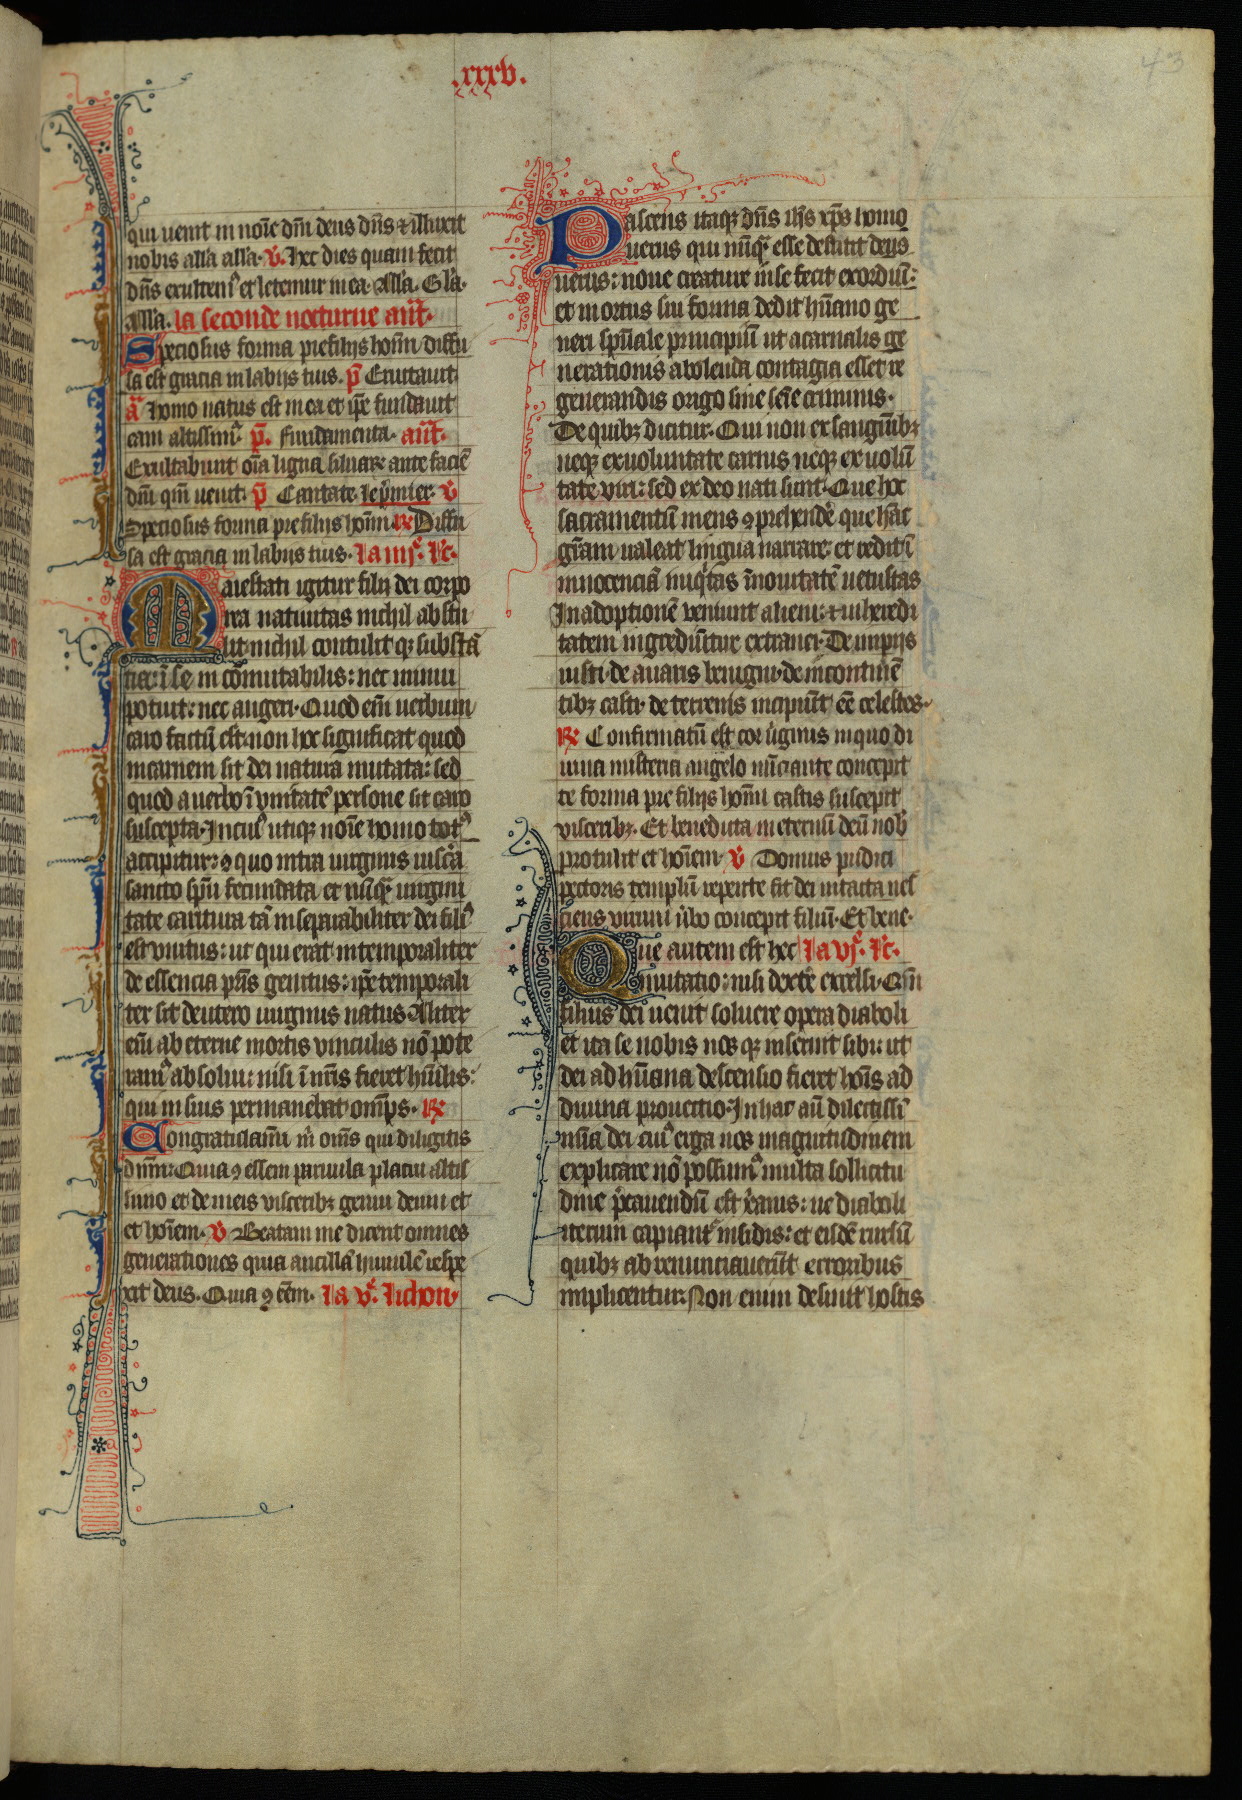 .xxxv.
43
qui uenit in noīe dn̄i deus dn̄s ⁊ illuxit
nobis all'a all'a. v̄. Hec dies quam fecit
dn̄s exultem᷒ et letemur in ea. All'a. Gl'a.
All'a. la seconde nocturne ant̄.
Speciosus forma prefilijs hom̄i diffu
sa est gracia in labijs tuis. p̄ Eructauit
ā Homo natus est in ea et ip̄e fundauit
eam altissim᷒ p̄. Fundamenta. ant̄.
Exultabunt oīa ligna siluaꝝ ante faciē
dn̄i qm̄ uenit. p̄ Cantate. le p̄mier v̄
Speciosus forma pre filijs hom̄i ℟ Diffu
sa est gracia in labijs tuis. la iiij᷒. l'c.
Maiestati igitur filij dei corpo
rea natiuitas nichil abstu
lit. nichil contulit qꝫ substā
tia: ī se in cōmutabilis: nec minui
potuit: nec augeri. Quod em̄ uerbum
caro factū est. non hoc significat quod
in carnem sit dei natura mutata: sed
quod a uerbo ī vnitatē persone sit caro
suscepta. In cui᷒ utiqꝫ noīe homo tot᷒
accipitur: ꝯ quo intra uirginis uisc'a
sancto sp̄u fecundata et nūqꝫ̄ uirgini
tate caritura tā inseparabiliter dei fili᷒
est vnitus: ut qui erat intemporaliter
de essencia p̄ris genitus: ip̄e temporali
ter sit de utero uirginis natus. Aliter
em̄ ab eterne mortis vinculis nō pote
ram᷒ absolui: nisi ī nr̄is fieret hūilis:
qui in suis permanebat om̄ps. ℟
Congratulam̄i m̄ om̄s qui diligitis
dn̄m: Quia ꝯ essem paruula placui altis
simo et de meis visceribꝫ genui deum et
et hoīem. v̄ Beatam me dicent omnes
generationes quia ancillā humilē respe
xit deus. Quia ꝯ cēm. la v᷒. lichon.
Nascens itaqꝫ dn̄s ih̄s xp̄s homo
uerus qui nūqꝫ̄ esse destitit deus
uerus: noue creature in se fecit exordiū:
et in ortus sui forma dedit hūano ge
neri sp̄uale principiū ut a carnalis ge
nerationis abolenda contagia esset re
generandis origo sine seīe criminis.
De quibꝫ dicitur. Qui non ex sanguībꝫ
neqꝫ ex uoluntate carnis neqꝫ ex uolū
tate viri: sed ex deo nati sunt. Que hoc
sacramentū mens ꝯprehendē que hāc
gr̄am ualeat lingua narrare: et redit ī
innocenciā iniq'tas ī nouitatē uetustas
In adoptionē veniunt alieni: ⁊ in heredi
tatem ingrediūtur extranei. De impijs
iusti. de auaris benigni. de incontinē
tibꝫ casti. de terrenis incipiūt eē celestes.
℟ Confirmatū est cor ūginis in quo di
uina misteria angelo nūciante concepit
te forma pre filijs hom̄i castis suscepit
visceribꝫ. Et benedicta in eternū deū nob'
protulit et hoīem. v̄ Domus pudici
pectoris templū repente fit dei intacta nes
ciens virum ūbo concepit filiū. Et bene.
Que autem est hec la vj᷒. l'c.
mutatio: nisi dextē excelsi. Qm̄
filius dei uenit soluere opera diaboli
et ita se nobis nos qꝫ inseruit sibi: ut
dei ad hūana descensio fieret hoīs ad
diuina prouectio: In hac aū dilectissi'
mīa dei cui᷒ erga nos magnitudinem
explicare nō possum᷒ multa sollicitu
dine p̄cauendū est x̄anis: ne diaboli
iterum capiant᷑ insidijs: et eisdē rursū
quibꝫ ab renunciauerūt erroribus
implicentur: Non enim desinit hostis